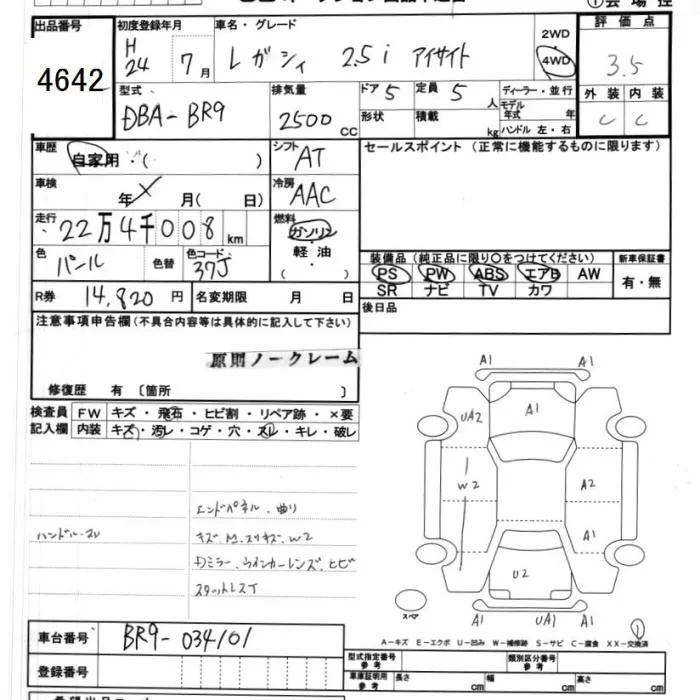 ①会場控
出品番号
4642
初度登録年月
H 24 7月
車名・グレード
レガシィ 2.5i アイサイト
2WD
4WD
評価点
3.5
外装 内装
C C
型式
DBA-BR9
排気量
2500 CC
ドア 5
定員 5 人
形状
積載 kg
ディーラー・並行
モデル年式 年
ハンドル 左・右
車歴
自家用・( )
シフト
AT
セールスポイント (正常に機能するものに限ります)
車検
年 × 月( 日)
冷房
AAC
走行
22万4千008km
燃料
ガソリン
軽油
( ・ )
色
パール
色替
色コード
37J
装備品 (純正品に限り○をつけてください)
新車保証書
PS PW ABS エアB AW
SR ナビ TV カワ
有・無
R券 14,820円
名変期限 月 日
後日品
注意事項申告欄(不具合内容等は具体的に記入して下さい)
原則ノークレーム
修復歴 有 〔箇所 〕
検査員記入欄
FW キズ・飛石・ヒビ割・リペア跡・×要
内装 キズ・汚レ・コゲ・穴・スレ・キレ・破レ
エンドパネル・曲り
ハンドル・スレ
キズ、M.スリキズ、W2
Dミラー、ウインカーレンズ、ヒビ
スタットレスT
A1 A1
UA2 A1
W2 A2
A1
U2
A1 UA1 A1
スペア
A-キズ E-エクボ U-凹み W-補修跡 S-サビ C-腐食 XX-交換済
車台番号
BR9-034101
登録番号
型式指定番号 参考
類別区分番号 参考
車庫証明用 参考
長さ cm 幅 cm 高さ cm